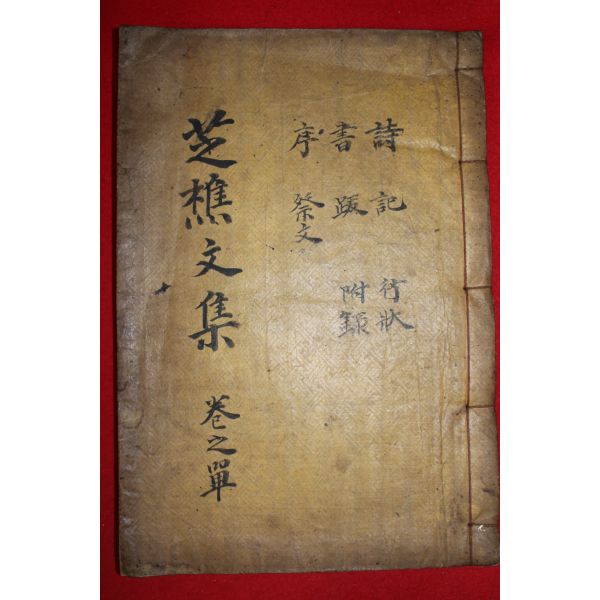 詩 記 行狀
書 跋 附錄
序 祭文
芝樵文集 卷之單